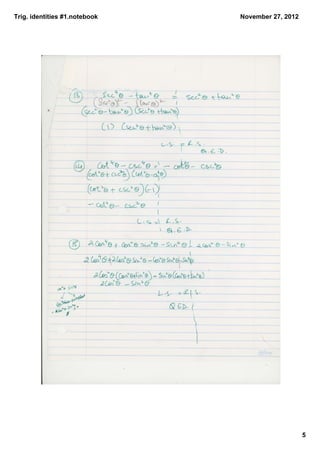 Trig. identities #1.notebook
November 27, 2012
⑬ sec⁴θ - tan⁴θ = sec²θ + tan²θ
(sec²θ)² - (tan²θ)²
(sec²θ - tan²θ)(sec²θ + tan²θ)
(1) (sec²θ + tan²θ)
L.S = R.S.
Q.E.D.
⑭ cot⁴θ - csc⁴θ = - cot²θ - csc²θ
(cot²θ + csc²θ)(cot²θ - csc²θ)
(cot²θ + csc²θ)(-1)
- cot²θ - csc²θ
L.S = R.S.
Q.E.D.
⑮ 2cos²θ + cos²θ sin²θ - sin⁴θ = 2cos²θ - sin²θ
2cos⁴θ + 2cos²θ sin²θ - cos²θ sin²θ - sin⁴θ
2cos²θ (cos²θ + sin²θ) - sin²θ (cos²θ + sin²θ)
2cos²θ - sin²θ
L.S. = R.S.
QED
5